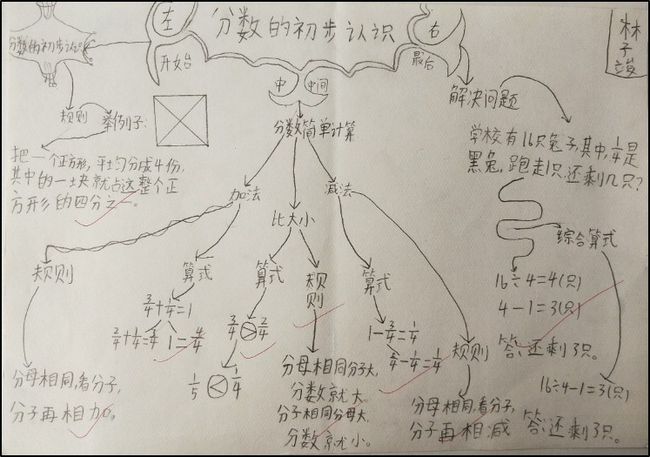 分数的初步认识
左
右
开始
最后
分数的初步认识
林子
规则
举例子:
把一个正方形,平均分成4份,
其中的一块就占这整个正
方形的四分之一。
中
中间
分数简单计算
加法
比大小
减法
规则
分母相同,看分子,
分子再相加。
算式
3/4+1/4=1
1=4/4
算式
3/4>2/4
1/5<1/4
规则
分母相同分子大,
分数就大。
分子相同分母大,
分数就小。
算式
1-3/4=1/4
规则
分母相同,看分子,
分子再相减
解决问题
学校有16只兔子,其中,1/4是
黑兔,跑走1只,还剩几只?
16÷4=4(只)
4-1=3(只)
答:还剩3只。
综合算式
16÷4-1=3(只)
答:还剩3只。